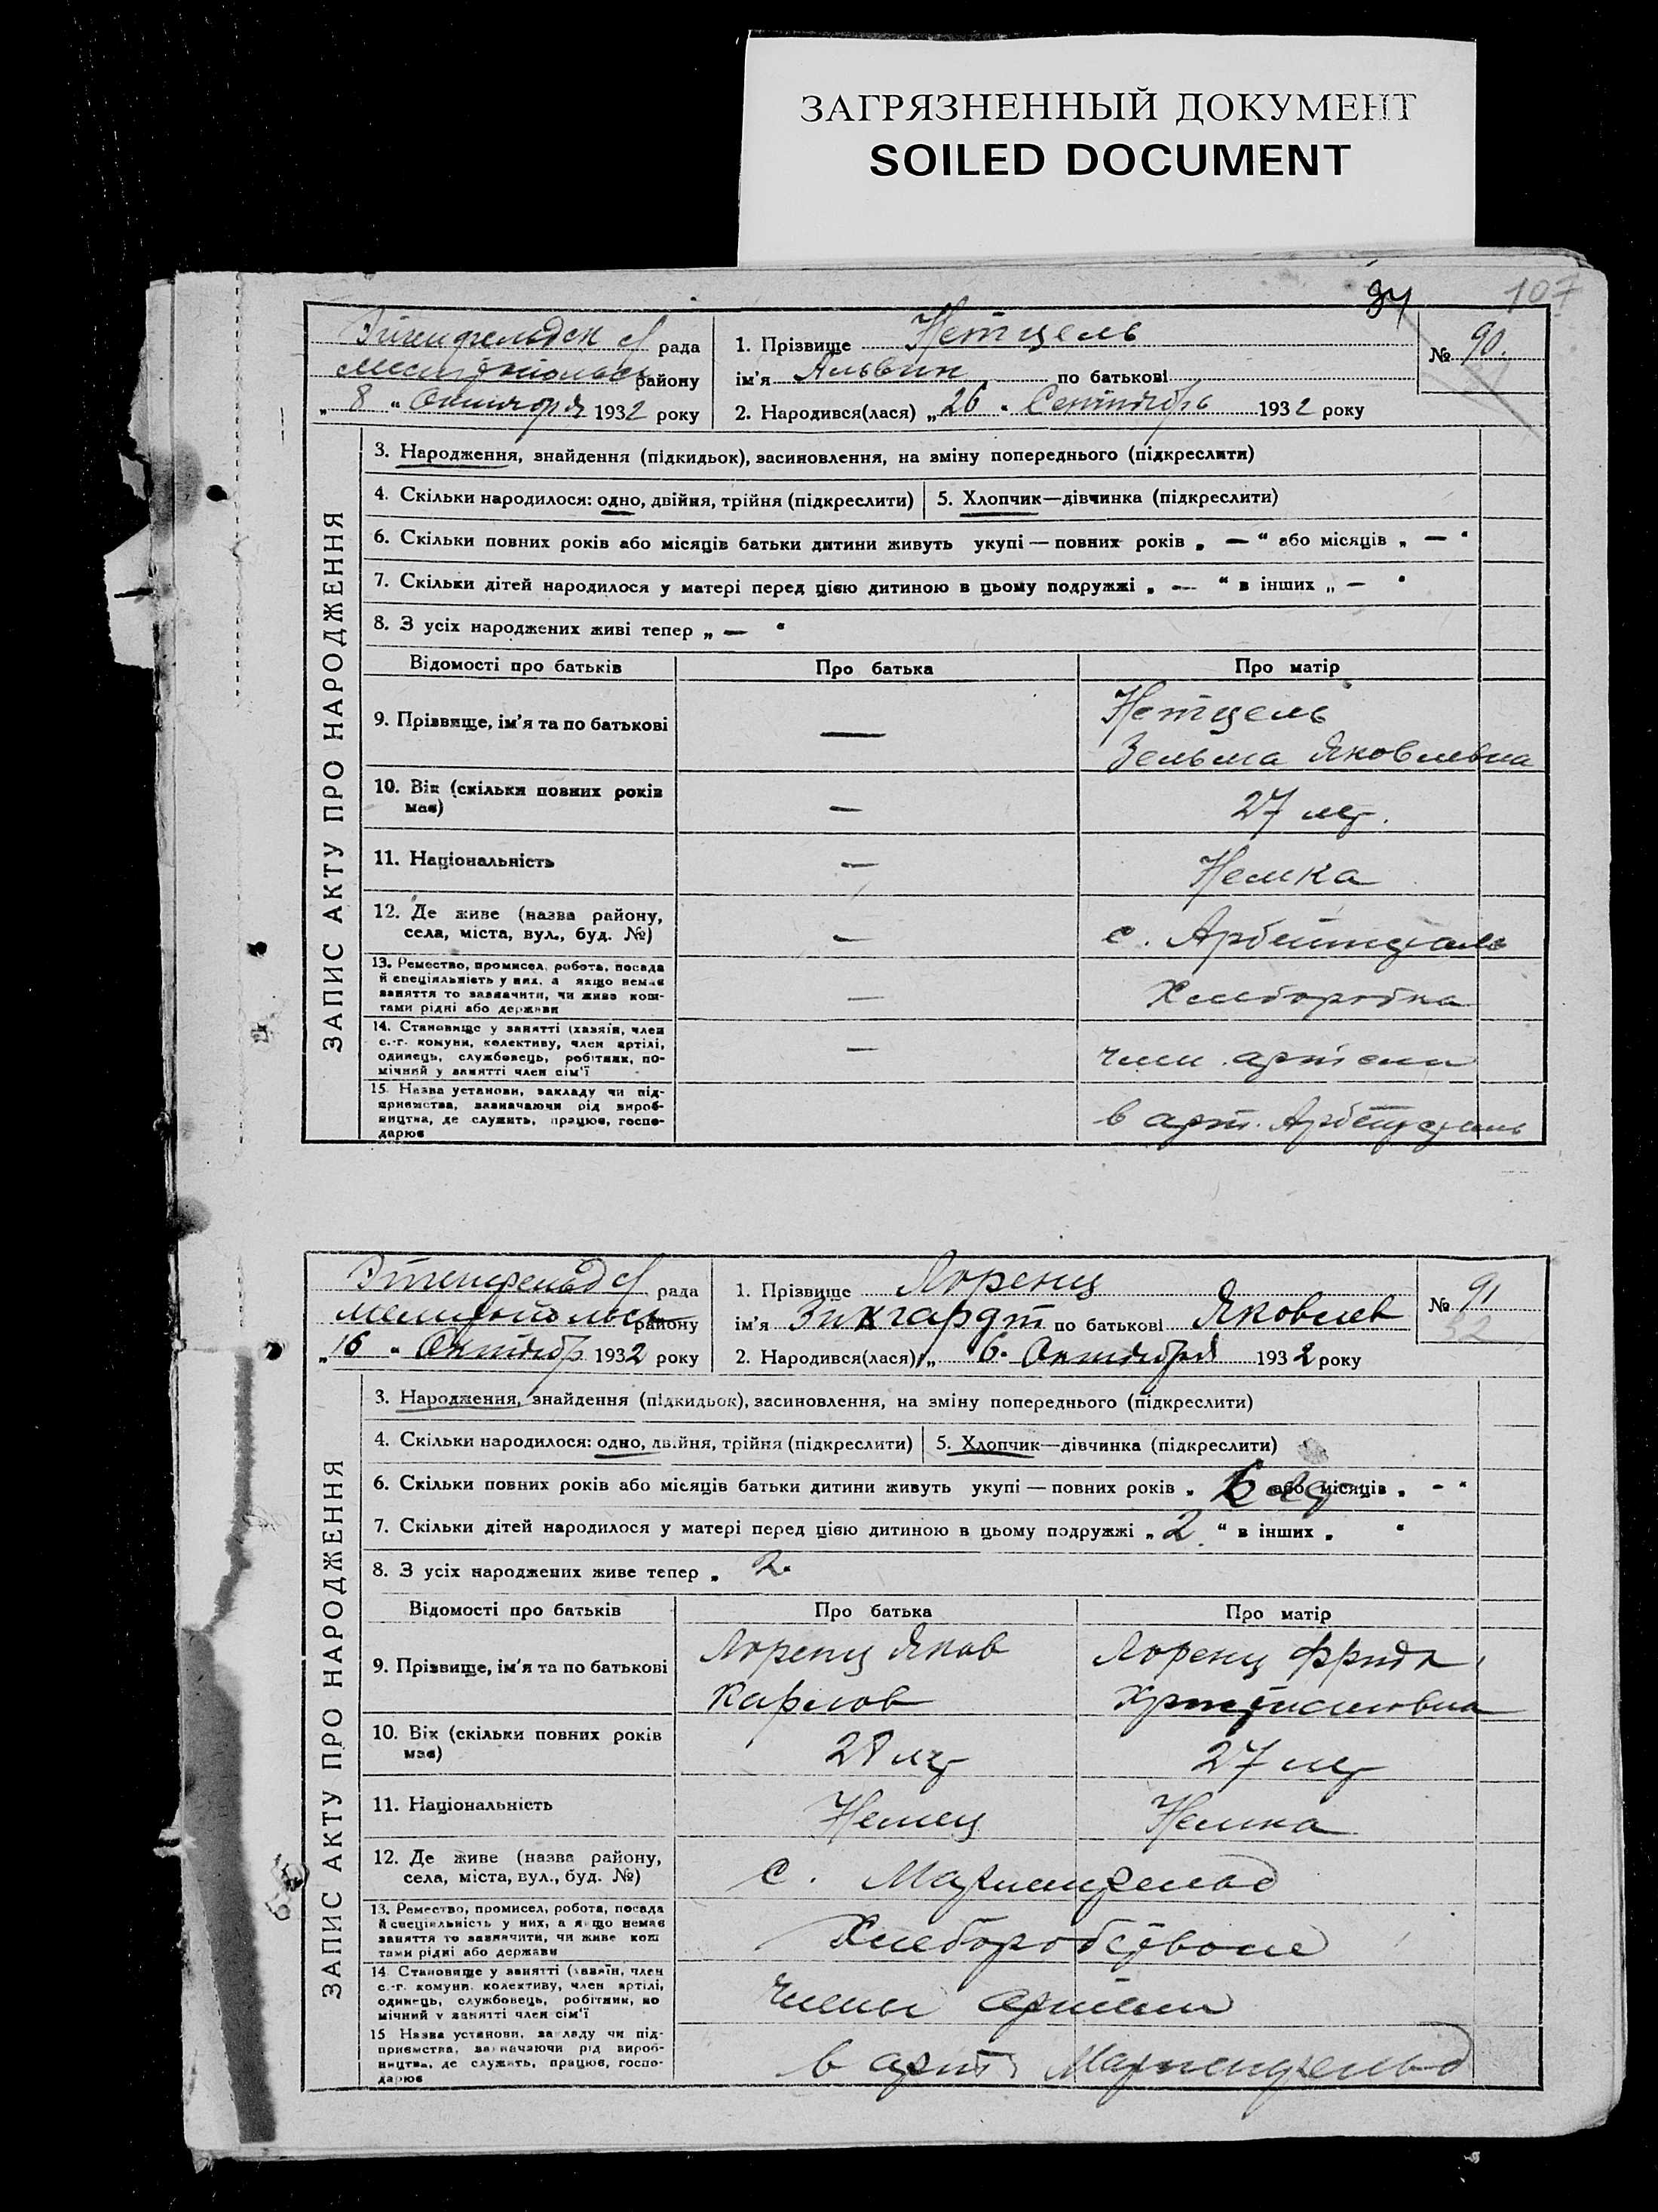 ЗАГРЯЗНЕННЫЙ ДОКУМЕНТ
SOILED DOCUMENT
107
рада
району
„ 8 " Октября 1932 року
1. Прізвище Нетцель
ім'я Альвин по батькові
2. Народився(лася) „26 " Сентябрь 1932 року
№ 90.
ЗАПИС АКТУ ПРО НАРОДЖЕННЯ
3. Народження, знайдення (підкидьок), засиновлення, на зміну попереднього (підкреслити)
4. Скільки народилося: одно, двійня, трійня (підкреслити)
5. Хлопчик—дівчинка (підкреслити)
6. Скільки повних років або місяців батьки дитини живуть укупі — повних років „ — " або місяців „ — "
7. Скільки дітей народилося у матері перед цією дитиною в цьому подружжі „ — " в інших „ — "
8. З усіх народжених живі тепер „ — "
Відомості про батьків
Про батька
Про матір
9. Прізвище, ім'я та по батькові
—
Нетцель
Зельма Яковлевна
10. Вік (скільки повних років
має)
—
27 лет.
11. Національність
—
Немка
12. Де живе (назва району,
села, міста, вул., буд. №)
—
с. Арбейтсталь
13. Ремество, промисел, робота, посада
й спеціяльність у них, а якщо немає
заняття то зазначити, чи живе кош-
тами рідні або держави
—
Хлеборобка
14. Становище у занятті (хазяїн, член
с.-г. комуни, колективу, член артілі,
одинець, службовець, робітник, по-
мічний у занятті член сім'ї
—
член артели
15. Назва установи, закладу чи під-
приємства, зазначаючи рід вироб-
ництва, де служить, працює, госпо-
дарює
в арт.
рада
району
„16 " Октябр 1932 року
1. Прізвище Лоренц
ім'я Зикгардт по батькові Яковлев
2. Народився(лася) „ 6. Октября 1932 року
№ 91
92
ЗАПИС АКТУ ПРО НАРОДЖЕННЯ
3. Народження, знайдення (підкидьок), засиновлення, на зміну попереднього (підкреслити)
4. Скільки народилося: одно, двійня, трійня (підкреслити)
5. Хлопчик—дівчинка (підкреслити)
6. Скільки повних років або місяців батьки дитини живуть укупі — повних років „ 6 або місяців „ - "
7. Скільки дітей народилося у матері перед цією дитиною в цьому подружжі „ 2 " в інших „ "
8. З усіх народжених живе тепер „ 2.
Відомості про батьків
Про батька
Про матір
9. Прізвище, ім'я та по батькові
Лоренц Яков
Карлов
Лоренц Фрида
10. Вік (скільки повних років
має)
28 лет
27 лет
11. Національність
Немец
Немка
12. Де живе (назва району,
села, міста, вул., буд. №)
с. Мариенфельд
13. Ремество, промисел, робота, посада
й спеціяльність у них, а якщо немає
заняття то зазначити, чи живе кош
тами рідні або держави
14. Становище у занятті (хазяїн, член
с.-г. комуни, колективу, член артілі,
одинець, службовець, робітник, по
мічний у занятті член сім'ї
Члены артели
15 Назва установи, закладу чи під-
приємства, зазначаючи рід вироб-
ництва, де служить, працює, госпо-
дарює
в арт. Мариенфельд